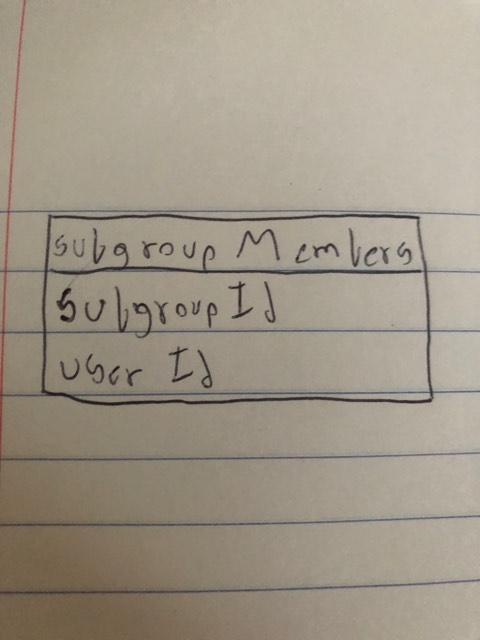 subgroup Members
subgroup Id
user Id